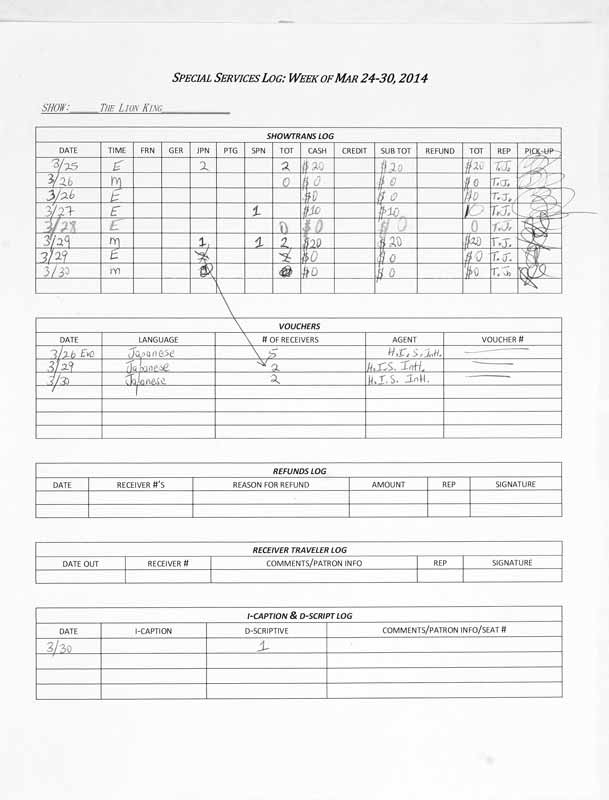 SPECIAL SERVICES LOG: WEEK OF MAR 24-30, 2014
SHOW: THE LION KING
SHOWTRANS LOG
DATE TIME FRN GER JPN PTG SPN TOT CASH CREDIT SUB TOT REFUND TOT REP PICK-UP
3/25 E 2 2 $20 $20 $20 T.J.
3/26 m 0 $0 $0 $0 T.J.
3/26 E $0 $0 $0 T.J.
3/27 E 1 $10 $10 10 T.J.
3/28 E 0 $0 $0 0 T.J.
3/29 m 1 1 2 $20 $20 $20 T.J.
3/29 E $0 $0 $0 T.J.
3/30 m $0 $0 $0 T.J.
VOUCHERS
DATE LANGUAGE # OF RECEIVERS AGENT VOUCHER #
3/26 Eve Japanese 5 H.I.S. Int.
3/29 Japanese 2 H.I.S. Intl.
3/30 Japanese 2 H.I.S. Intl.
REFUNDS LOG
DATE RECEIVER #'S REASON FOR REFUND AMOUNT REP SIGNATURE
RECEIVER TRAVELER LOG
DATE OUT RECEIVER # COMMENTS/PATRON INFO REP SIGNATURE
I-CAPTION & D-SCRIPT LOG
DATE I-CAPTION D-SCRIPTIVE COMMENTS/PATRON INFO/SEAT #
3/30 1